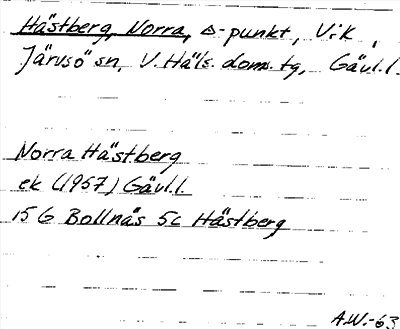 Hästberg, Norra, △-punkt, Vik,
Järvsö sn, V. Häls. doms. tg, Gävl.l.
Norra Hästberg
ek (1957) Gävl.l.
15 G Bollnäs 5c Hästberg
A.W.-63